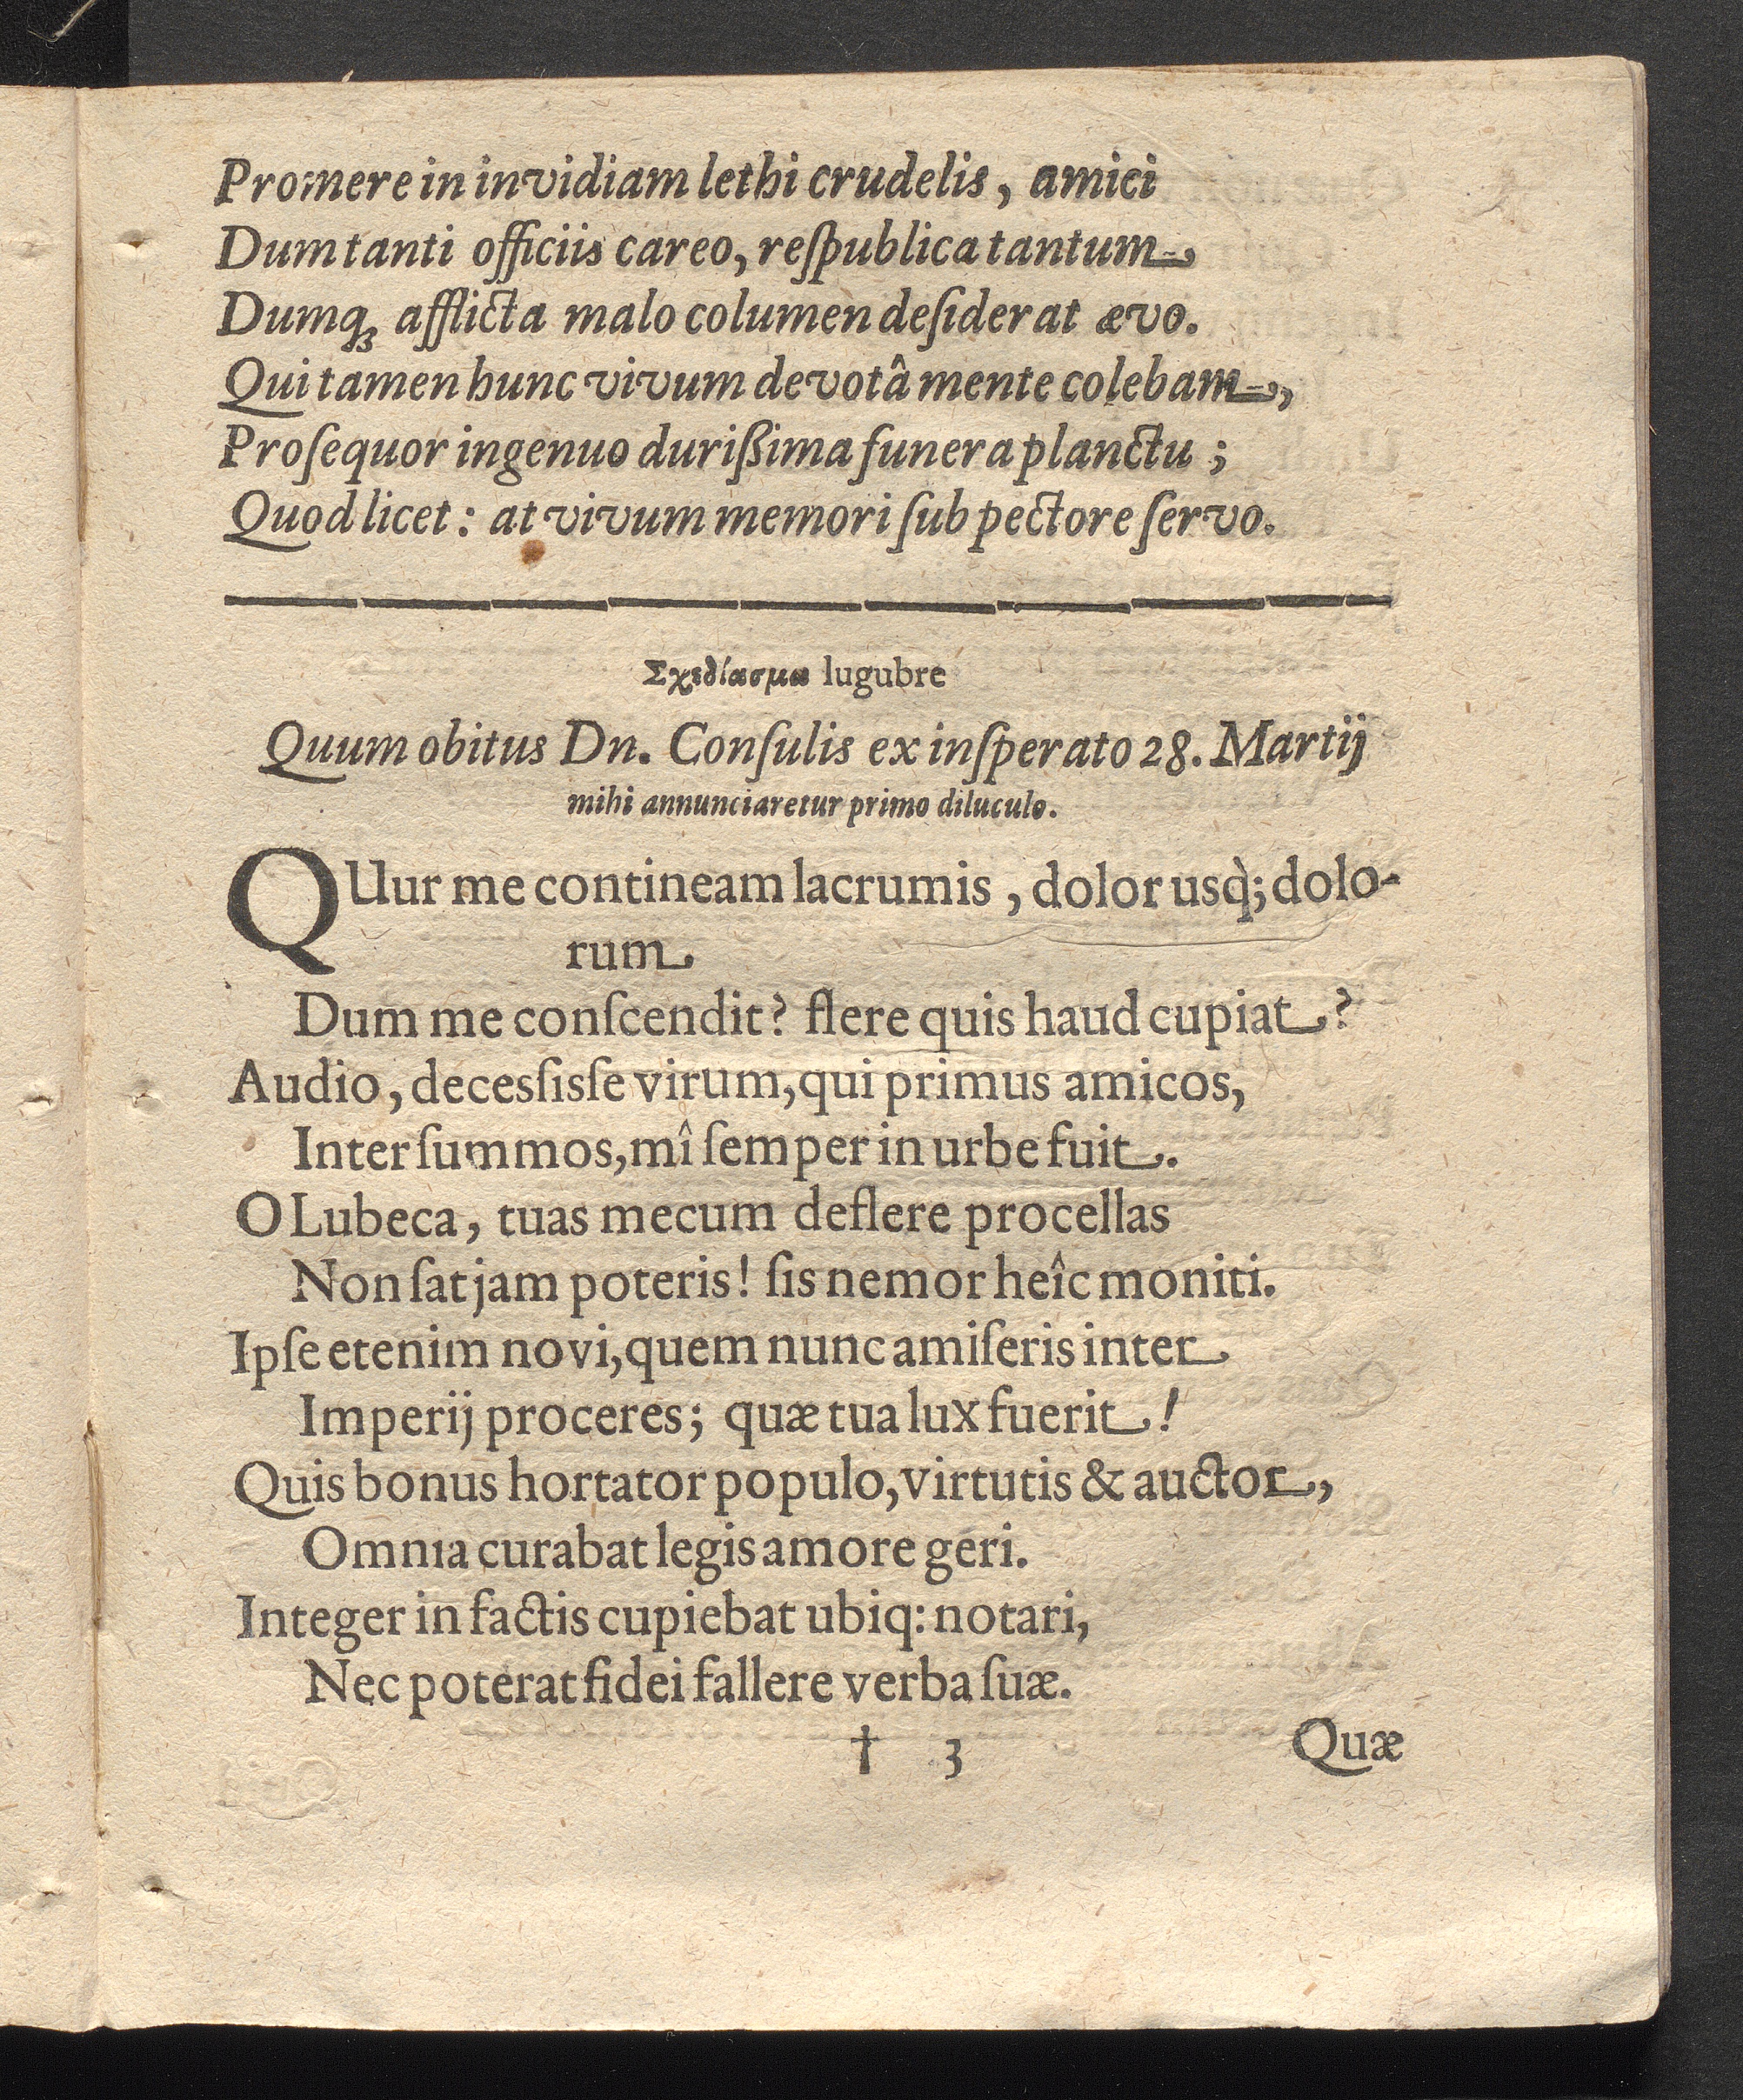 Promere in invidiam lethi crudelis, amici
Dum tanti officiis careo, reſpublica tantum
Dumq́ꝫ afflicta malo columen deſiderat ævo.
Qui tamen hunc vivum devotâ mente colebam,
Proſequor ingenuo durißima funera planctu;
Quod licet: at vivum memori ſub pectore ſervo.
Σχεδίασμα lugubre
Quum obitus Dn. Conſulis ex inſperato 28. Martij
mihi annunciaretur primo diluculo.
QUur me contineam lacrumis, dolor usq̀; dolo-
rum
Dum me conſcendit? flere quis haud cupiat?
Audio, decesſisſe virum, qui primus amicos,
Inter ſummos, mî ſemper in urbe fuit.
O Lubeca, tuas mecum deflere procellas
Non ſat jam poteris! ſis nemor heîc moniti.
Ipſe etenim novi, quem nunc amiſeris inter
Imperij proceres; quæ tua lux fuerit!
Quis bonus hortator populo, virtutis & auctor,
Omnia curabat legis amore geri.
Integer in factis cupiebat ubiq: notari,
Nec poterat fidei fallere verba ſuæ.
† 3 Quæ